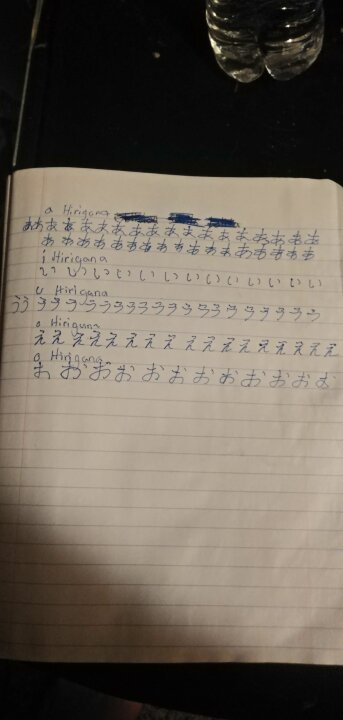 a Hirigana
ああああああああああああああああああ
ああああああああああああああああああ
i Hirigana
いいいいいいいいいいいいい
u Hirigana
ううううううううううううううううううううう
e Hirigana
えええええええええええええええええ
o Hirigana
おおおおおおおおおおおお